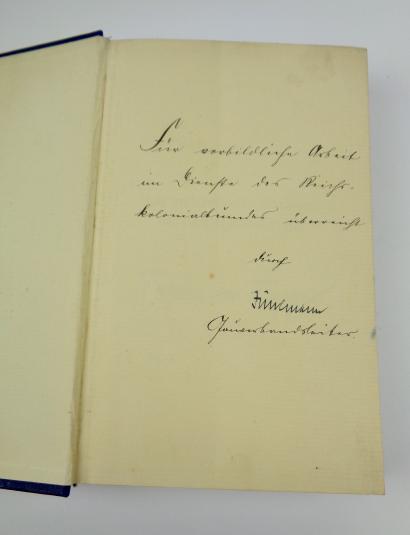 Für vorbildliche Arbeit
im Dienste des Reichs-
kolonialbundes überreicht
durch
Gauverbandsleiter.